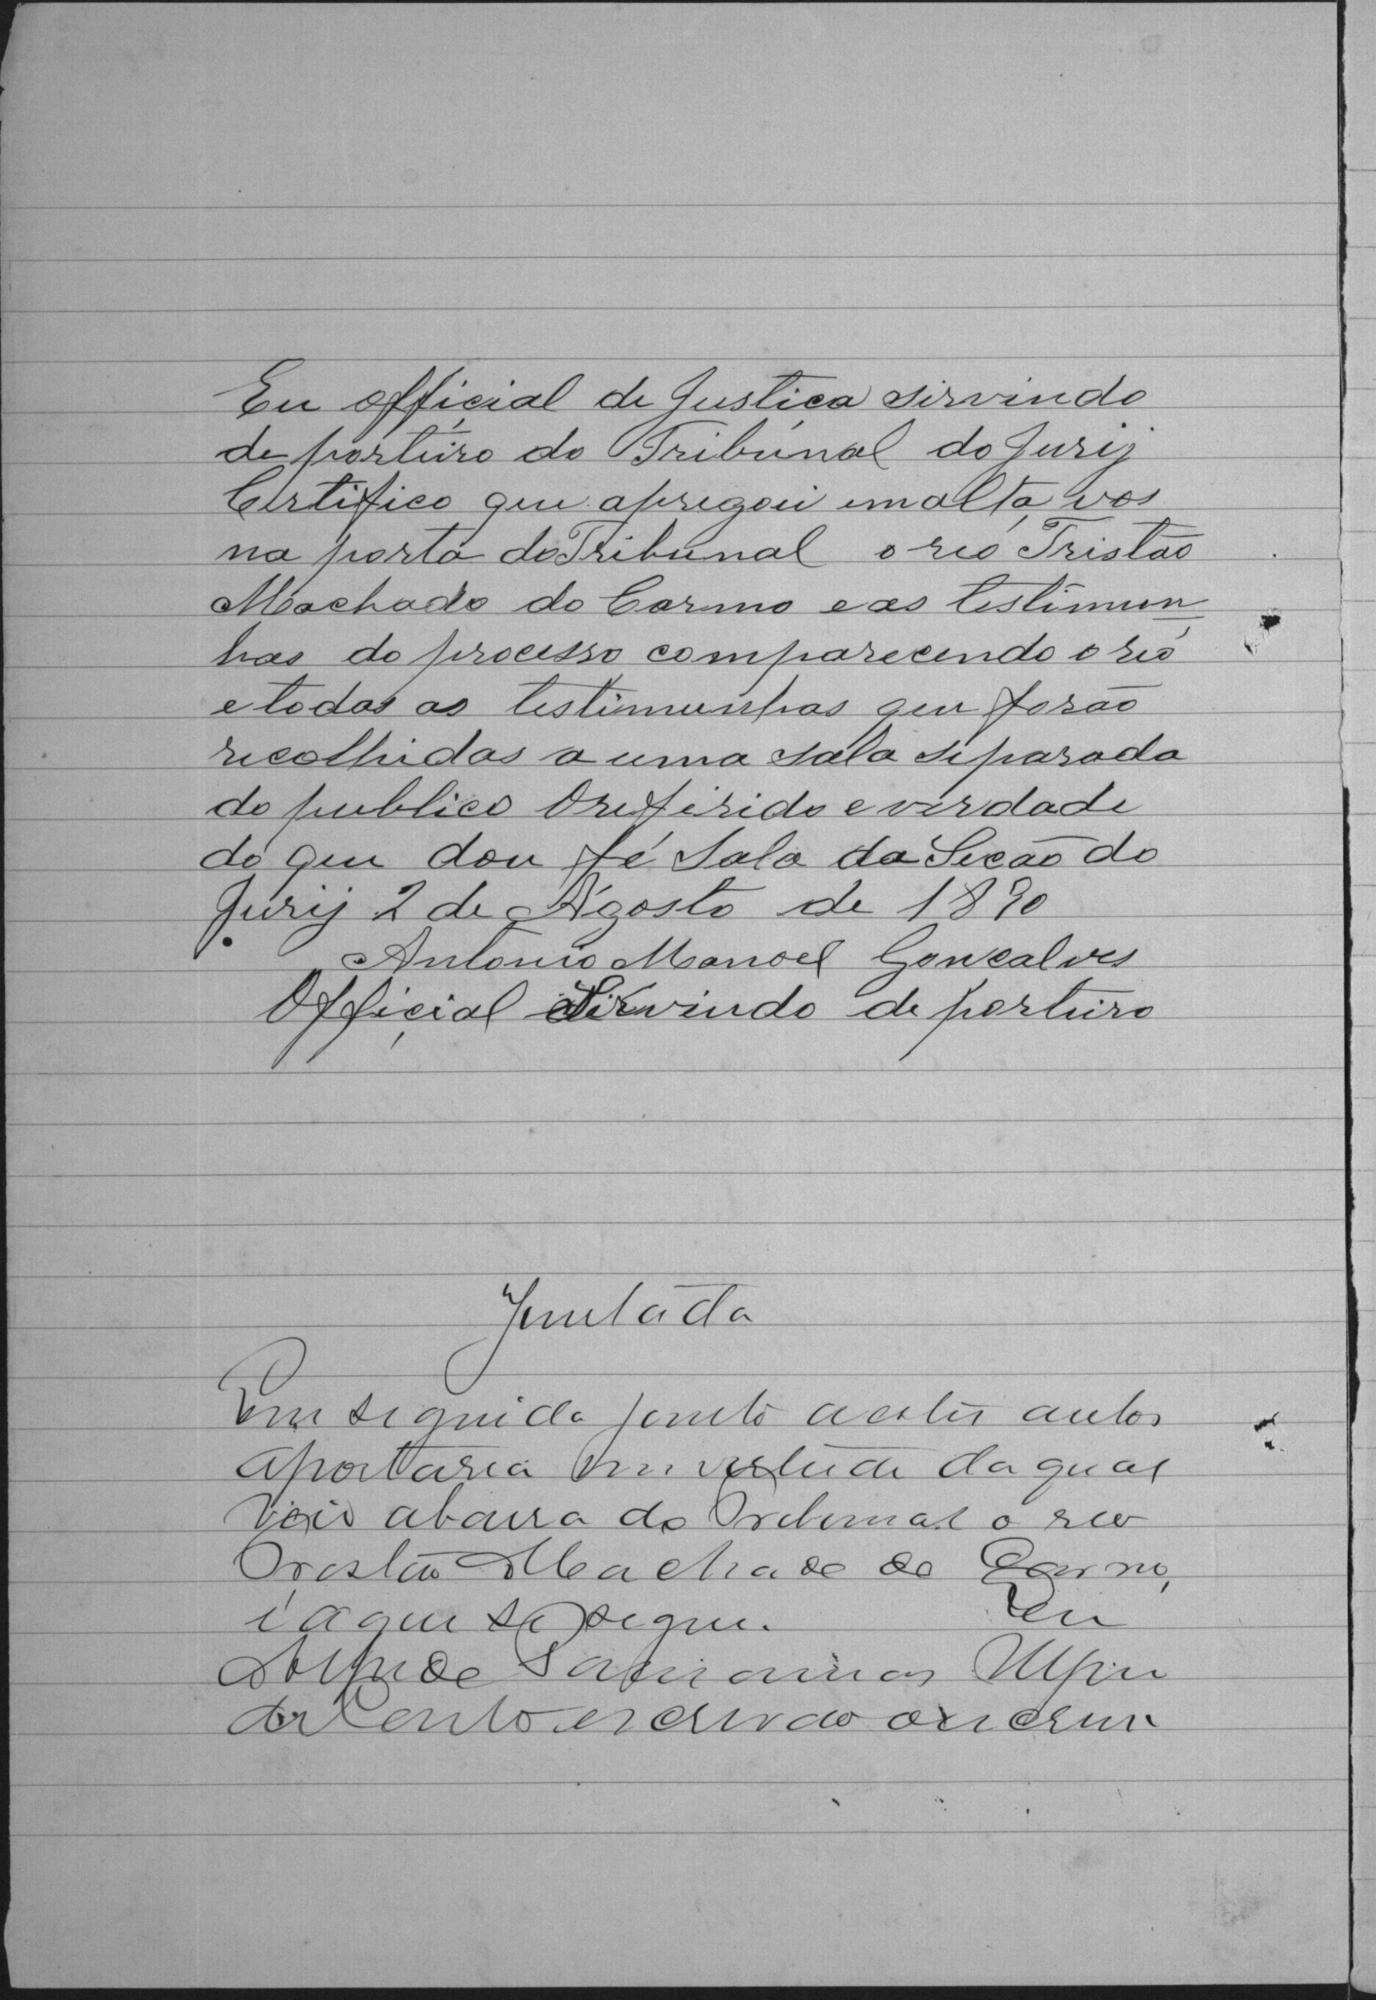 Eu official de Justica sirvindo
de portiiro do Tribunal do Jurij
Certifico que apregoei em alta vos
na porta do Tribunal o reo Tristão
Machado do Carmo e as testimun
has do processo comparecendo o reo
e todas as testimunhas que forão
recolhidas a uma sala siparada
do publico O refirido e virdade
do que dou fé Sala da Secão do
Jurij 2 de Agosto de 1890
Antonio Manoel Goncalves
Official Sirvindo de portiiro
Juntada
Em seguida junto a estes autos
a portaria em vertude da qual
veio a barra do Tribunal o reo
Tristão Machado do Carmo,
é a que se segue. Eu
de
Couto escrivão o escrevi